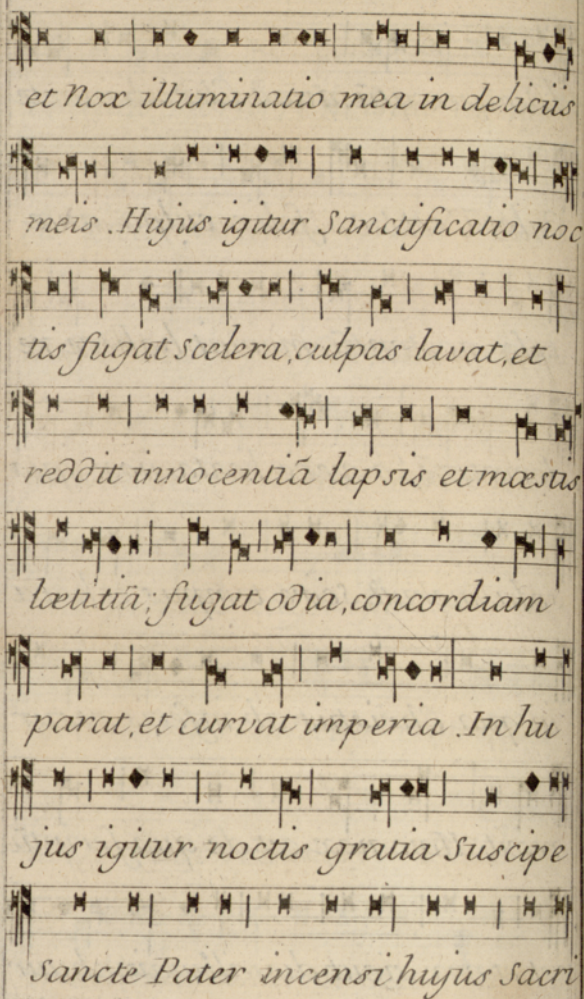 et Nox illuminatio mea in deliciis
meis . Hujus igitur Sanctificatio noc
tis fugat scelera, culpas lavat, et
reddit innocentiã lapsis et mœstis
lætitiã; fugat odia, concordiam
parat, et curvat imperia . In hu
jus igitur noctis gratia Suscipe
Sancte Pater incensi hujus Sacri